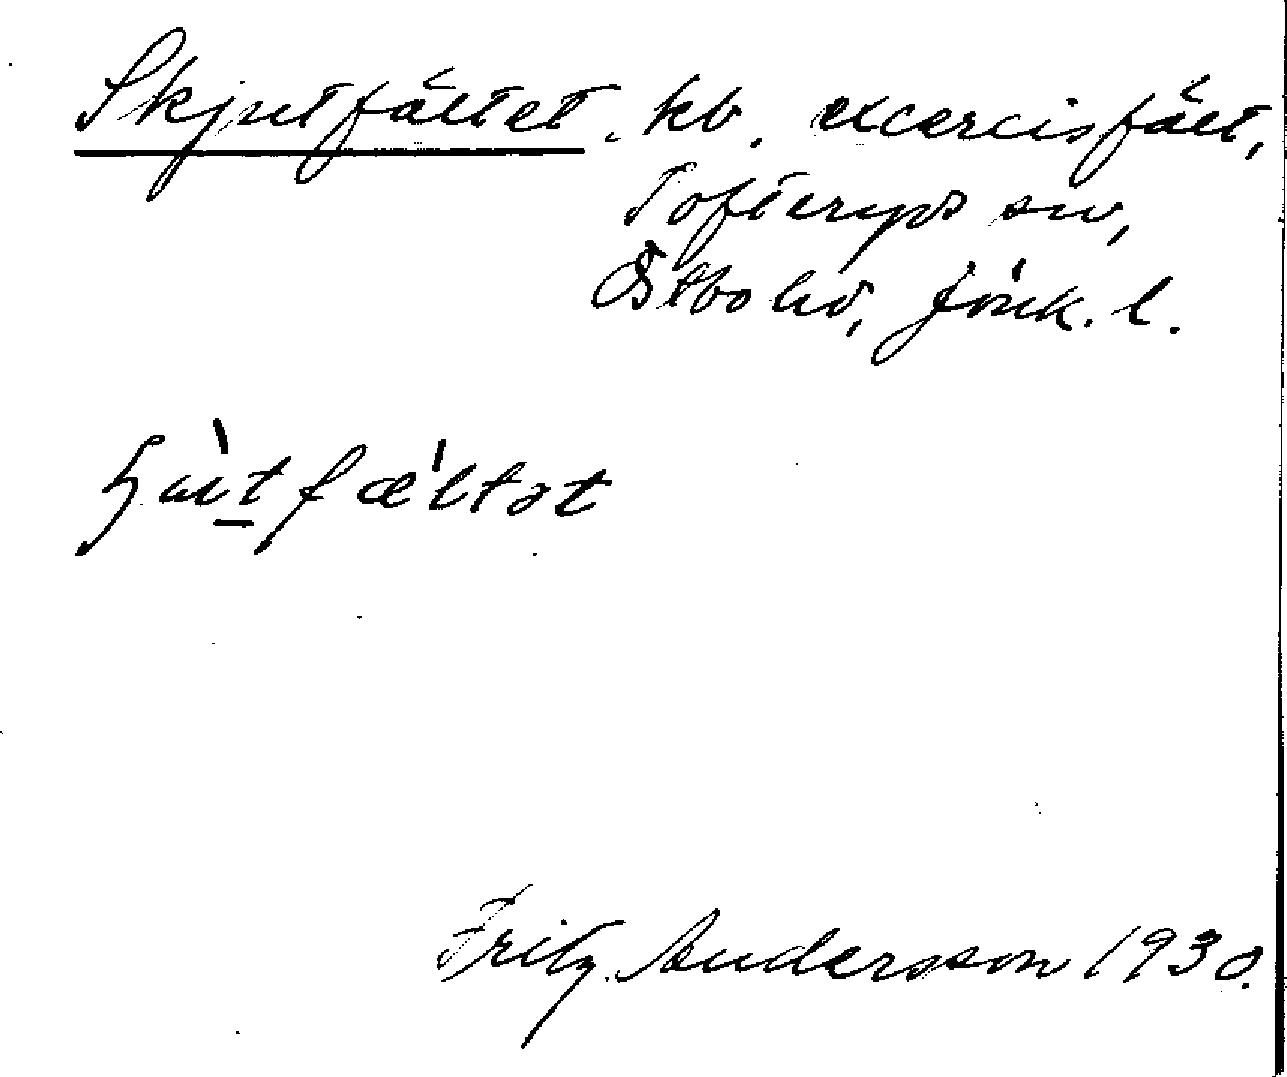 Skjutfältet. kb. excercisfält,
Tofteryds sn,
Östbo hd, Jönk. l.
ɧu̇̀t fæ̀ltət
Fritz Andersson 1930.